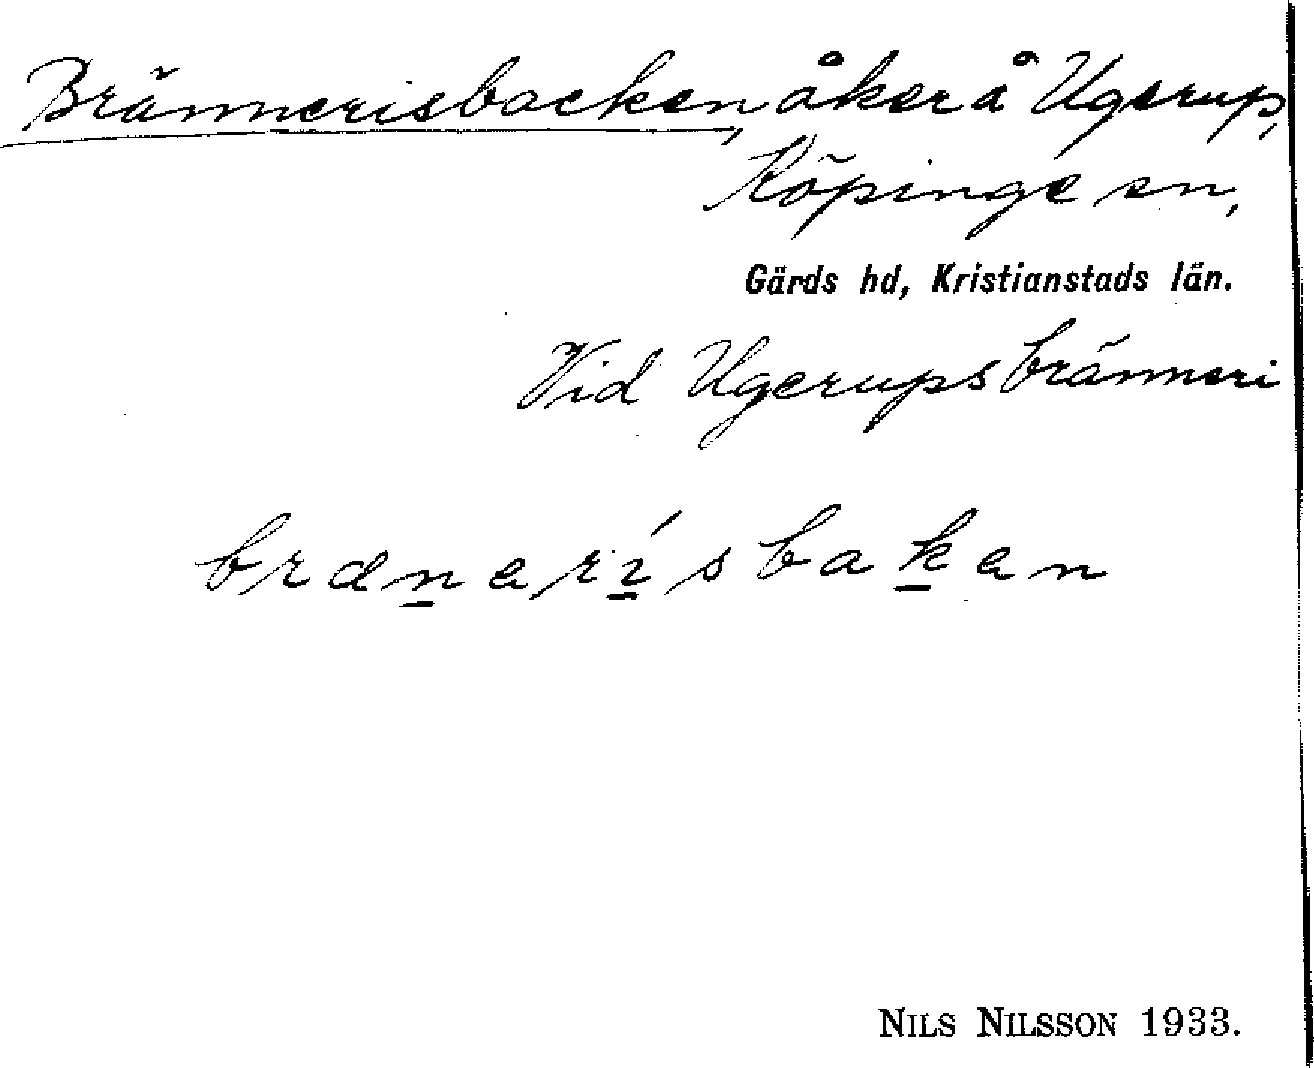 Brännerisbacken, åker å Ugerup,
Köpinge sn,
Gärds hd, Kristianstads län.
Vid Ugerups bränneri
brænerísbaken
NILS NILSSON 1933.